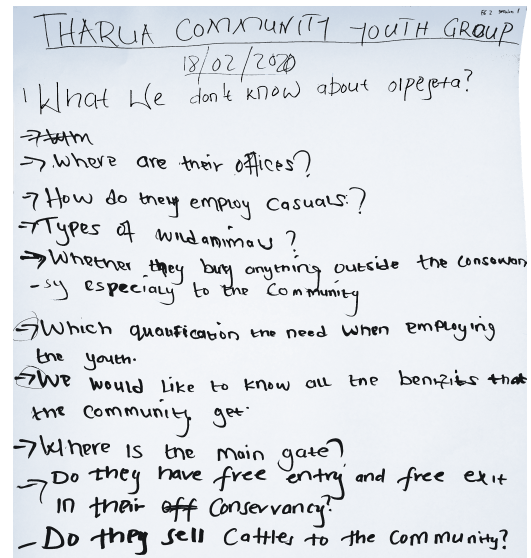 THARUA COMMUNITY YOUTH GROUP
18/02/2020
1 What We don't know about olpejeta?
→ Where are their offices?
→ How do they employ casuals?
→ Types of wildanimals?
→ Whether they buy anything outside the conservan
- sy especialy to the Community
→ Which quaufication the need when employing
the youth.
→ We would like to know all the benefits that
the community get.
→ Where is the main gate?
→ Do they have free entry and free exit
in their off Conservancy?
- Do they sell Cattles to the Community?